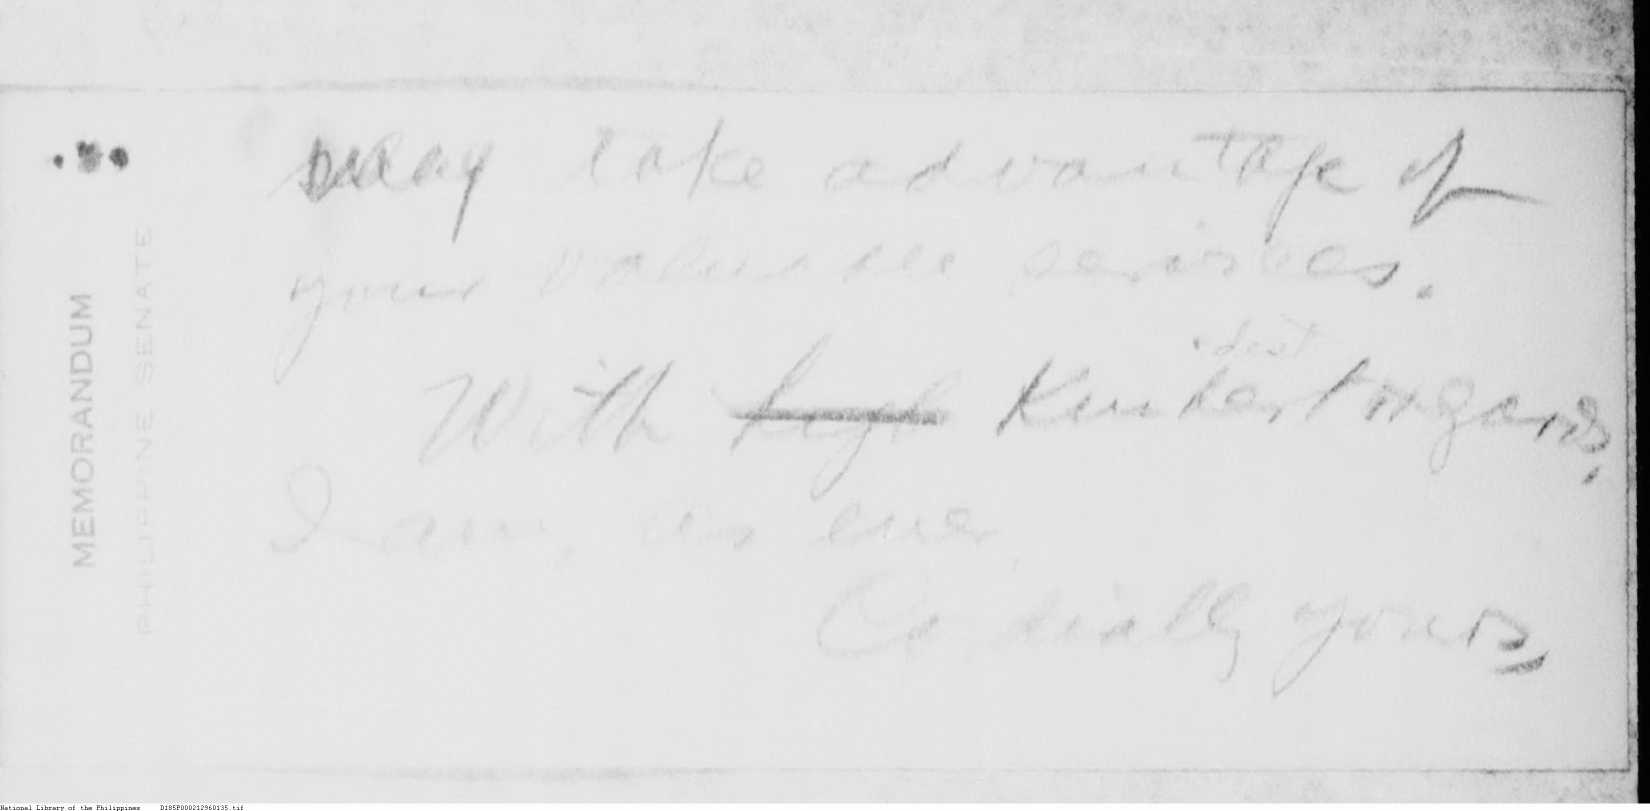 MEMORANDUM
PHILIPPINE SENATE
may take advantage of
your valuable services.
dest
With high Kindest regards,
I am, as ever,
Cordially yours,
National Library of the Philippines D185P000212960135.tif